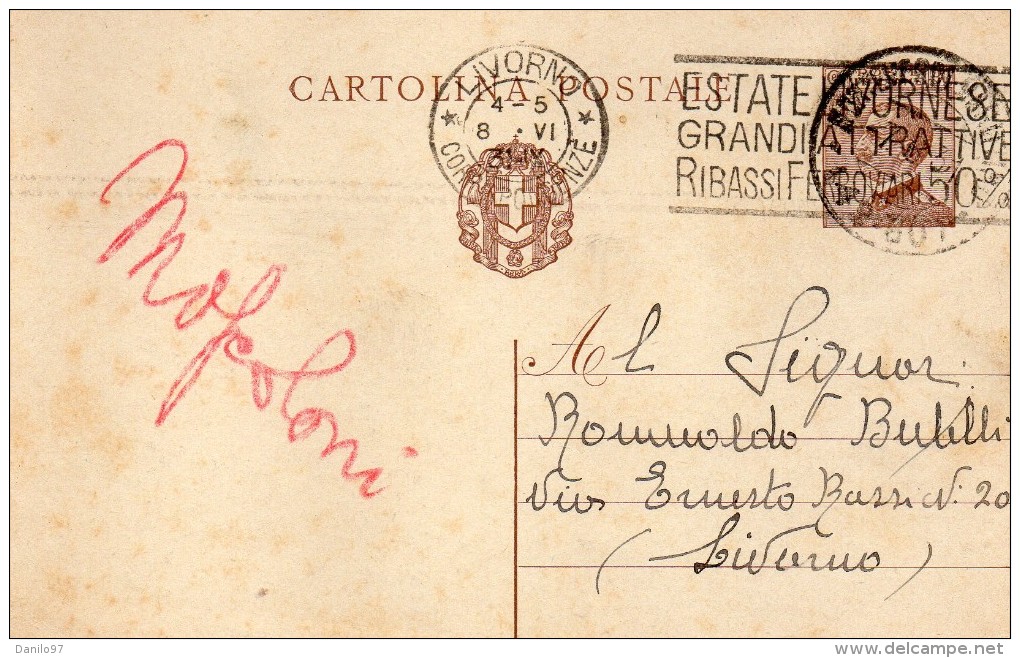 CARTOLINA POSTALE
LIVORNO
4-5
8 · VI
ESTATE LIVORNESE
GRANDI ATTRATTIVE
RIBASSI FERROVIARI 50%
Al Signor
Romualdo
Via Ernesto Rossi N. 20
(Livorno)
Danilo97
www.delcampe.net